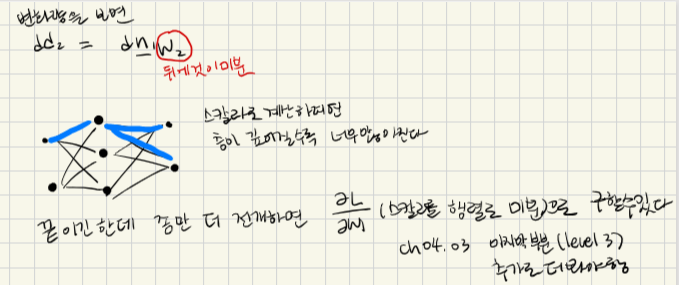 변화량을 보면
dd₂ = dn₁W₂
뒤에것이 미분
스칼라로 계산하려면
층이 깊어질수록 너무 많아진다
끝이긴한데 좀만 더 전개하면 ∂L/∂W₁ (스칼라를 행렬로 미분)으로 구할수있다
ch04.03 마지막부분 (level 3)
추가로 더 봐야함